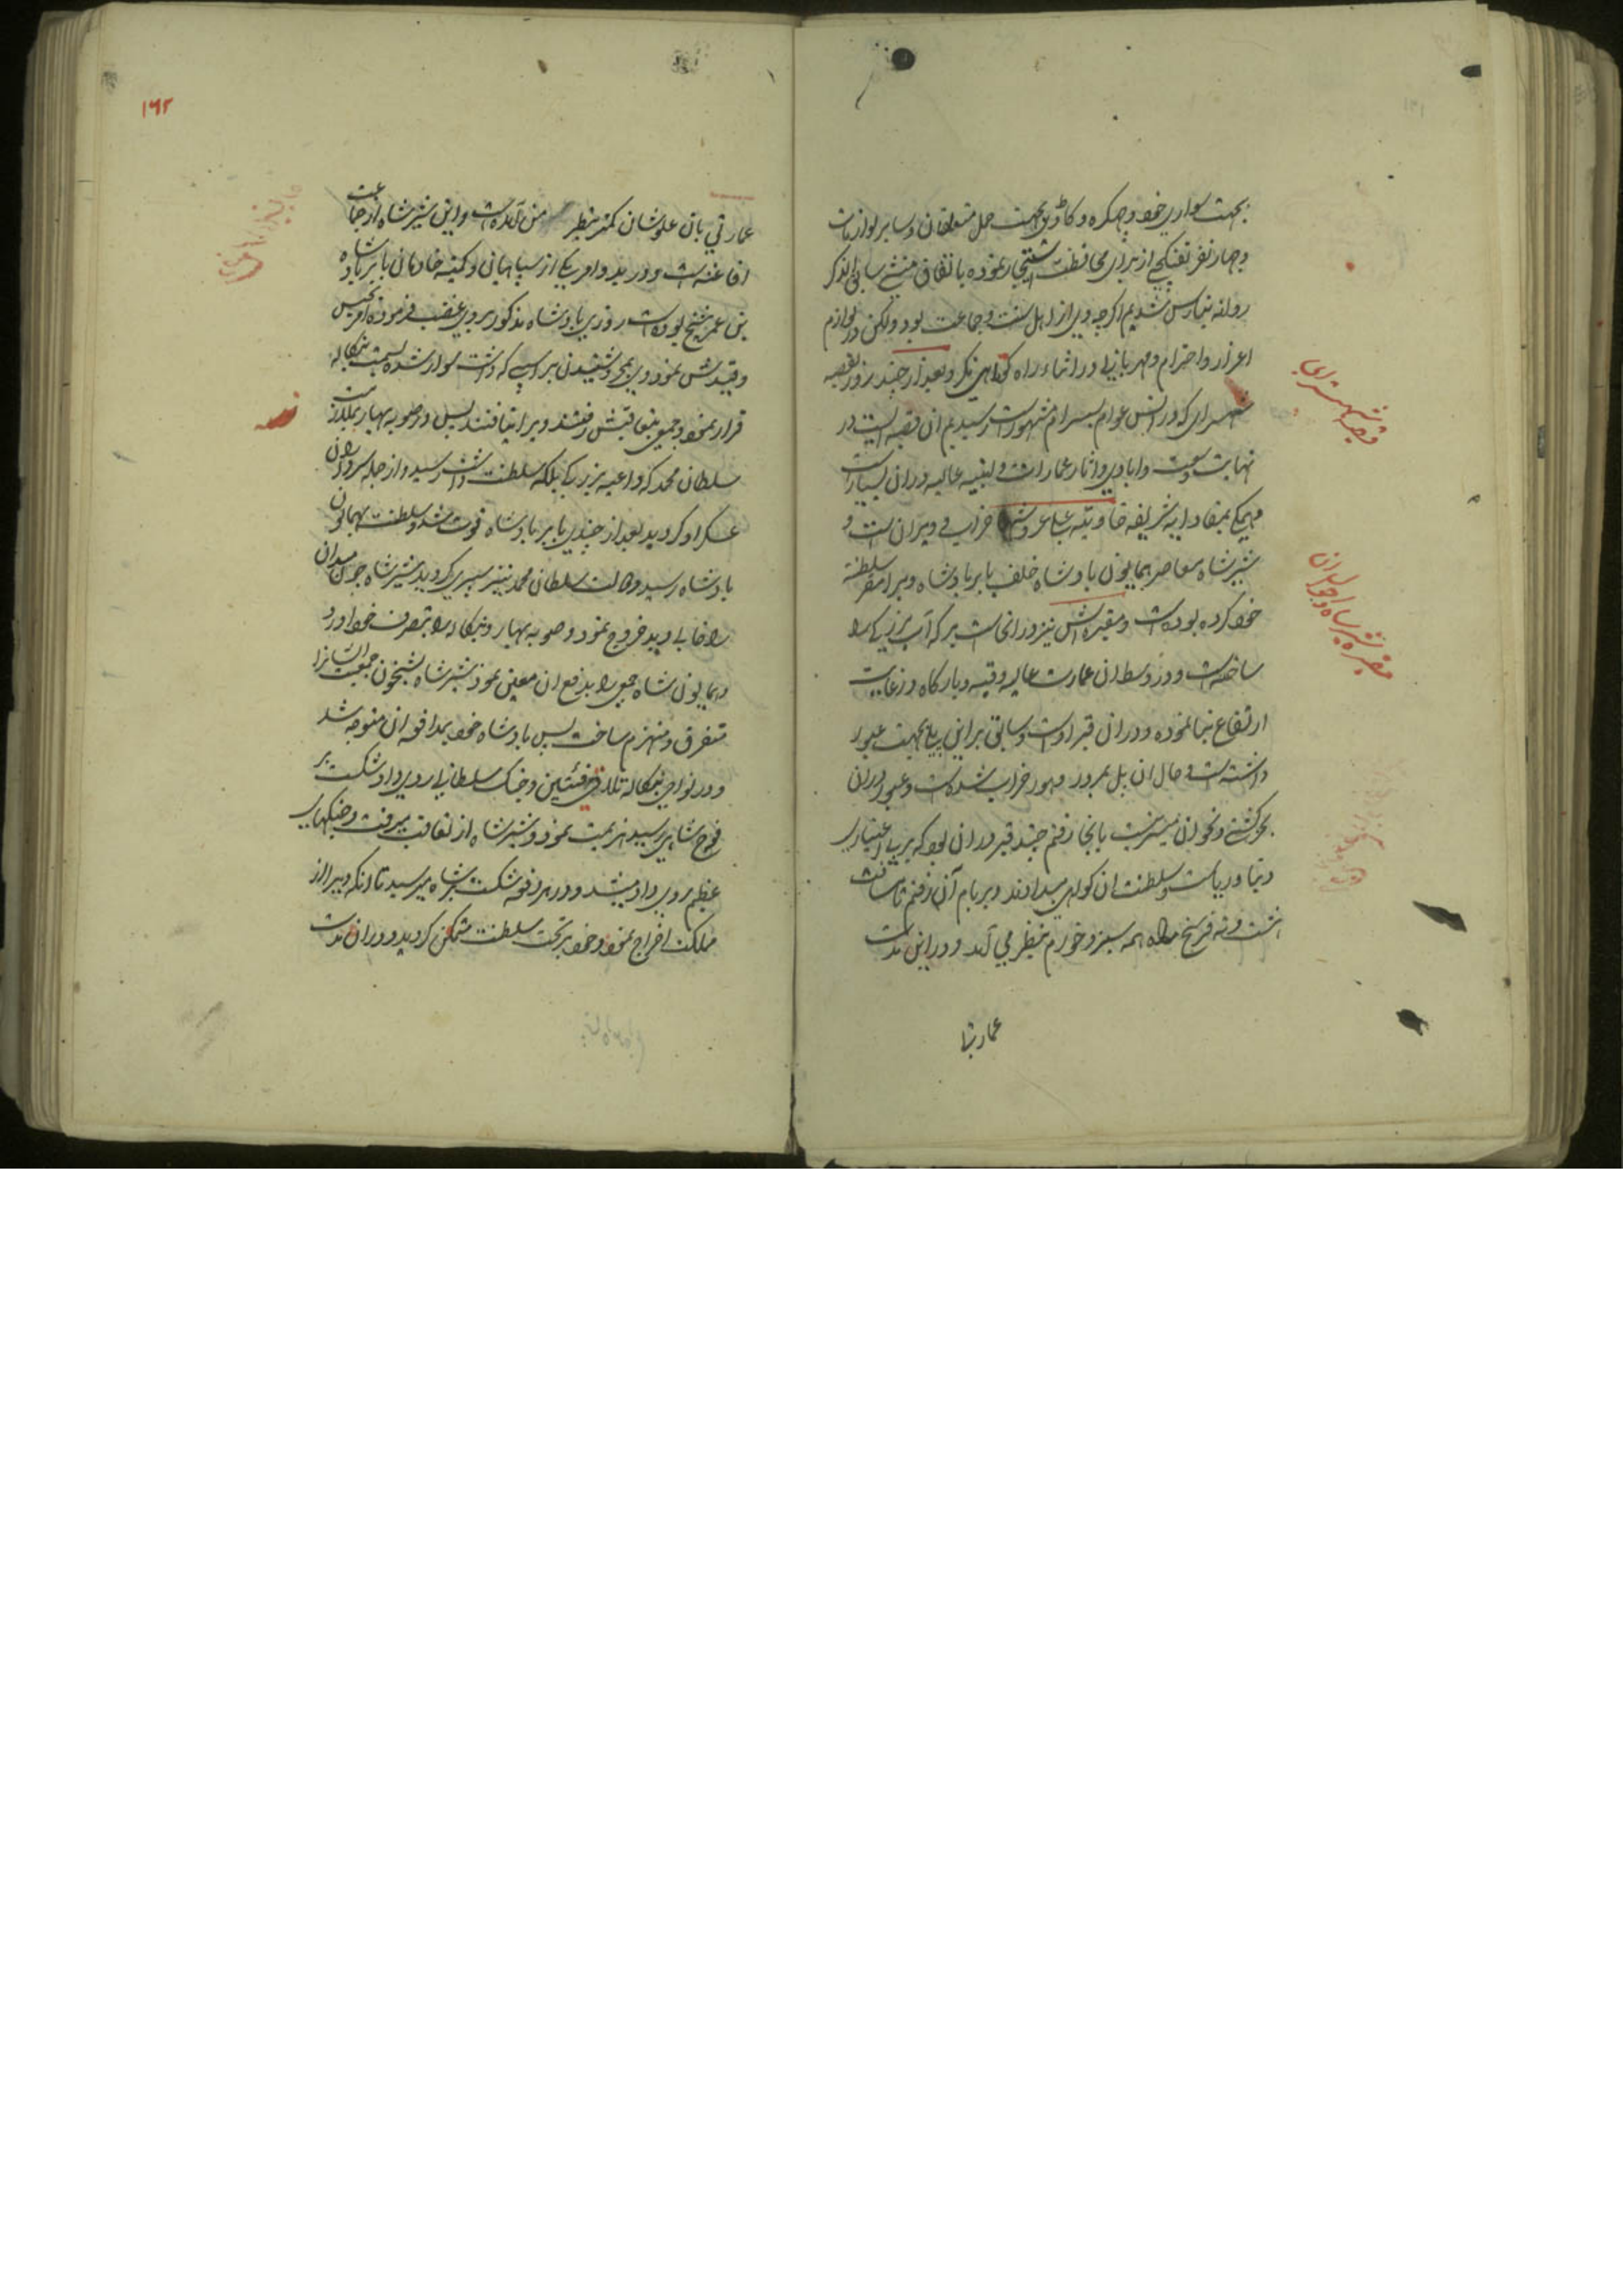 بجهت سواری خود و چهکره و کادی بجهت حمل متعلقان و سایر لوازمات
و چهار نفر تفنگچی از برای محافظت استیجار نموده باتفاق منشی سابق الذکر
روانه بنارس شدیم اگرچه وی از اهل سنت و جماعت بود ولکن در لوازم
اعزاز و احترام و مهربانی در اثناء راه کوتاهی نکرد و بعد از چند روز بقصبه
شهسرای که در السن عوام بسسرام مشهور است رسیدیم ان قصبه ایست در
نهایت وسعت و ابادی و اثار عمارات و ابنیه عالیه در ان بسیار است
و همکی بمفاد ایه شریفه خاویة علی عروشها خراب و ویران است و
شیرشاه معاصر همایون بادشاه خلف بابر بادشاه ویرا مقر سلطنة
خود کرده بوده است و مقبره اش نیز در انجاست برکه آب بزرکی را
ساخته است و در وسط ان عمارت عالیه و قبه و بارکاه در غایت
ارتفاع بنا نموده و در ان قبر اوست و سابق بر این پلی بجهت عبور
داشته است و حال ان پل بمرور دهور خراب شده است و عبور در ان
بجز کشتی و نحو ان میسر نیست بانجا رفتم چند قبر در ان بود که بر بی اعتباری
دنیا و ریاست و سلطنت ان کواهی میدادند و بر بام آن رفتم تا مسافت
هشت و نه فرسخ راه همه سبز و خورم بنظر می آمد و در این مدت
عمارتی
قصبه شهسرای
مقبره شیرشاه و احوال ان
۱۶۲
عمارتی بان علوشان کمتر بنظر من آمده است و این شیرشاه از جماعت
افاغنه است و در بدو امر یکی از سپاهیان و کمینه خادمان بابر بادشاه
بن عمر شیخ بوده است روزی بادشاه مذکور بر وی غضب فرموده امر بحبس
و قیدش نمود وی بمجرد شنیدن بر اسپی که داشت سوار شده بسمت بنکاله
فرار نمود و جمعی بتعاقبش رفتند ویرا نیافتند پس در صوبه بهار بملازمت
سلطان محمد که داعیه بزرکی بلکه سلطنت داشت رسید و از جمله سرداران
عسکر او کردید بعد از چندی بابر بادشاه فوت شد و سلطنت بهمایون
بادشاه رسید و حالت سلطان محمد نیز سپری کردید شیرشاه چون میدان
را خالی دید خروج نمود و صوبه بهار و بنکاله را بتصرف خود اورد
و همایون شاه جمعی را بدفع ان معین نمود شیرشاه بشبیخون جمعیت انها را
متفرق و منهزم ساخت پس بادشاه خود بمدافعه ان متوجه شد
و در نواحی بنکاله تلاقی فئتین و جنک سلطانی روی داد شکست بر
فوج شاهی رسید هزیمت نمود و شیرشاه از تعاقب میرفت و جنکهای
عظیم روی داد میشد و در هر دفعه شکست بر شاه میرسید تا انکه ویرا از
مملکت اخراج نمود و خود بر تخت سلطنت متمکن کردید و در ان مدت